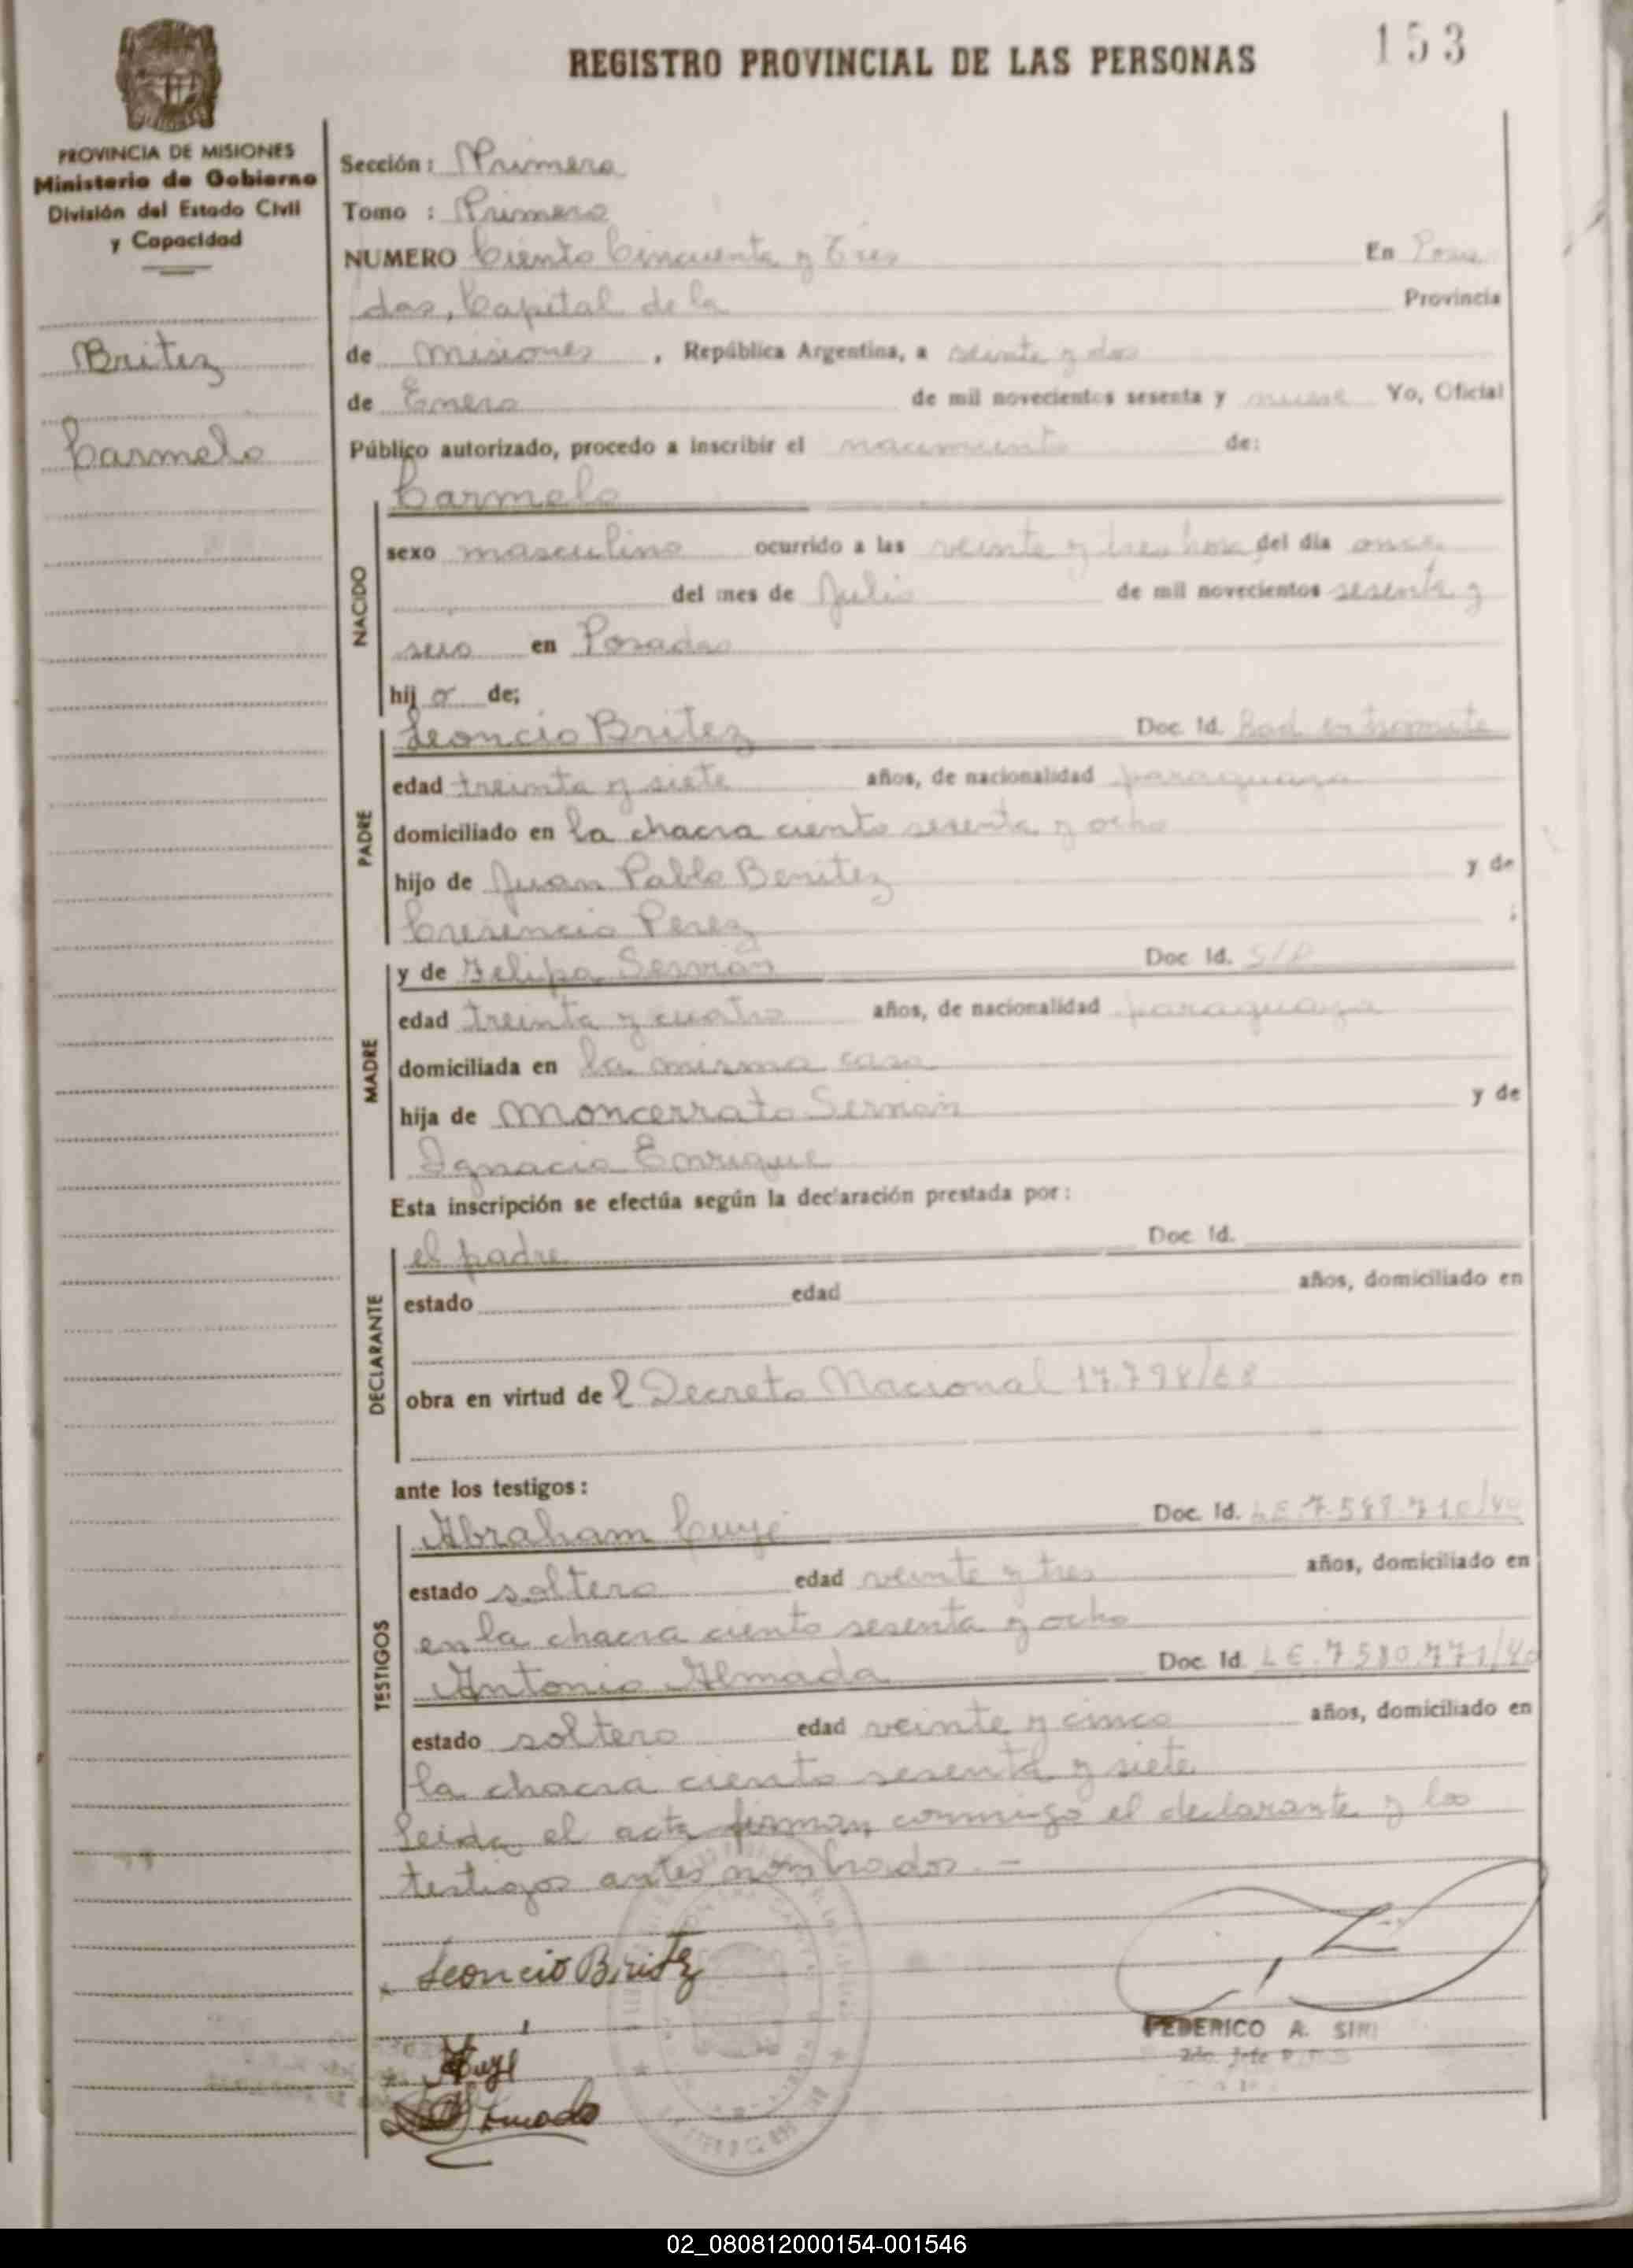 REGISTRO PROVINCIAL DE LAS PERSONAS
153
PROVINCIA DE MISIONES
Ministerio de Gobierno
División del Estado Civil
y Capacidad
Britez
Carmelo
Sección: Primera
Tomo : Primero
NUMERO Ciento Cincuenta y Tres En Posa
das, Capital de la Provincia
de Misiones, República Argentina, a veinte y dos
de Enero de mil novecientos sesenta y nueve Yo, Oficial
Público autorizado, procedo a inscribir el nacimiento de:
NACIDO
Carmelo
sexo masculino ocurrido a las veinte y tres hora del día once
del mes de Julio de mil novecientos sesenta y
seis en Posadas
hij o de;
PADRE
Leoncio Britez Doc. Id. Rad. en tramite
edad treinta y siete años, de nacionalidad paraguaya
domiciliado en la chacra ciento sesenta y ocho
hijo de Juan Pablo Benitez y de
Cresencia Perez ;
MADRE
y de Felipa Servian Doc Id.
edad treinta y cuatro años, de nacionalidad paraguaya
domiciliada en la misma casa
hija de Moncerrato Servian y de
Ignacia Enrique
Esta inscripción se efectúa según la declaración prestada por:
DECLARANTE
el padre Doc Id.
estado edad años, domiciliado en
obra en virtud de l Decreto Nacional 17.798/68
ante los testigos:
TESTIGOS
Abraham Cuyé Doc. Id. L.E.
estado soltero edad veinte y tres años, domiciliado en
en la chacra ciento sesenta y ocho
Antonio Almada Doc. Id. L E. 7580.771/40
estado soltero edad veinte y cinco años, domiciliado en
la chacra ciento sesenta y siete
Leida el acta firman conmigo el declarante y los
testigos antes nombrados. -
Leoncio Britez
FEDERICO A. SIRI
2do. Jefe
02_080812000154-001546